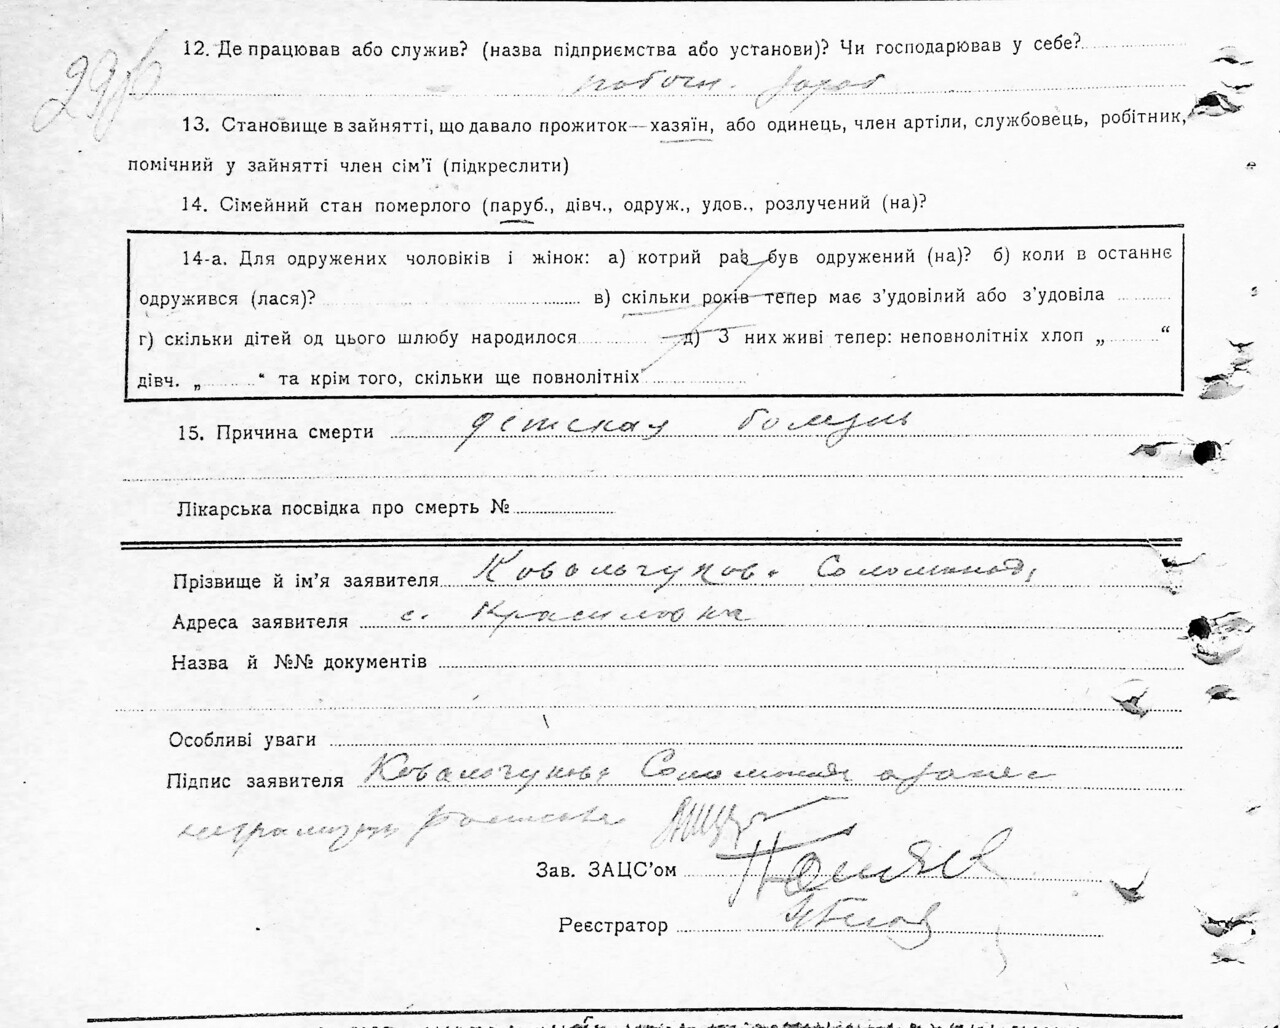 12. Де працював або служив? (назва підприємства або установи)? Чи господарював у себе?
13. Становище в зайнятті, що давало прожиток—хазяїн, або одинець, член артіли, службовець, робітник,
помічний у зайнятті член сім’ї (підкреслити)
14. Сімейний стан померлого (паруб., дівч., одруж., удов., розлучений (на)?
14-а. Для одружених чоловіків і жінок: а) котрий раз був одружений (на)? б) коли в останнє
одружився (лася)? в) скільки років тепер має з’удовілий або з’удовіла
г) скільки дітей од цього шлюбу народилося д) З них живі тепер: неповнолітніх хлоп „ “
дівч. „ “ та крім того, скільки ще повнолітніх
15. Причина смерти детская болезнь
Лікарська посвідка про смерть №
Прізвище й ім’я заявителя Ковальчуков.
Адреса заявителя с.
Назва й №№ документів
Особливі уваги
Підпис заявителя
Зав. ЗАЦС’ом
Реєстратор